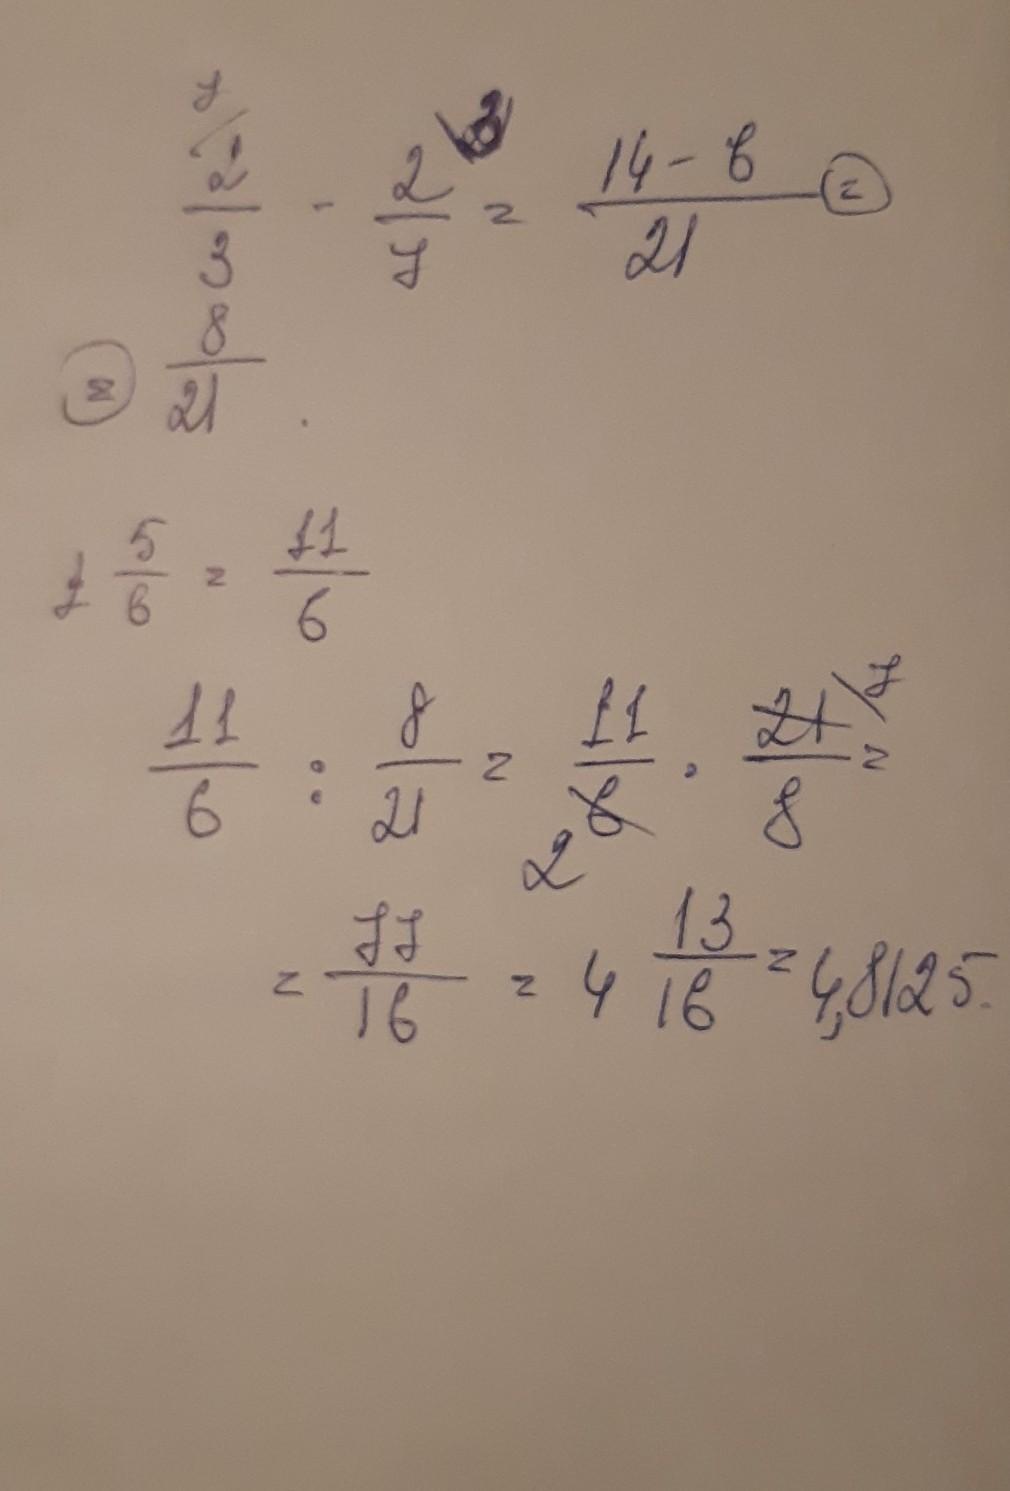 2/3 - 2/7 = (14 - 6)/21 =
= 8/21.
1 5/6 = 11/6
11/6 : 8/21 = 11/6 · 21/8 =
= 77/16 = 4 13/16 = 4,8125.